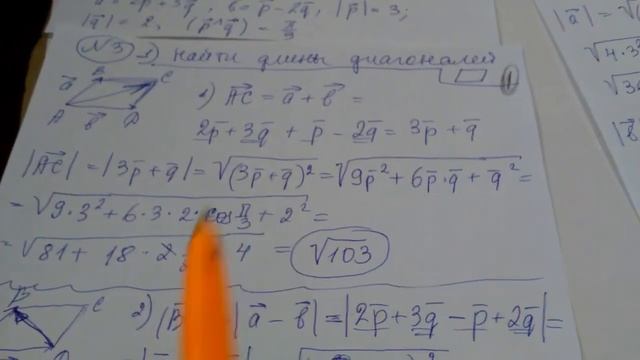 a = 2p̄ + 3q̄, b = p̄ − 2q̄, |p̄| = 3;
|q̄| = 2, (p̄ ^ q̄) − π/3
№3 1) Найти длины диагоналей
B C
a⃗
A b⃗ D
1) A͞C = a⃗ + b⃗ =
2p̄ + 3q̄ + p̄ − 2q̄ = 3p̄ + q̄
|A͞C| = |3p̄ + q̄| = √(3p̄ + q̄)² = √9p̄² + 6p̄·q̄ + q̄² =
= √9·3² + 6·3·2·cos π/3 + 2² =
= √81 + 18·2 4 = √103
B C 2) |B | a⃗ − b⃗| = |2p̄ + 3q̄ − p̄ + 2q̄| =
|a⃗| = √
√4·3²
√3
|b⃗